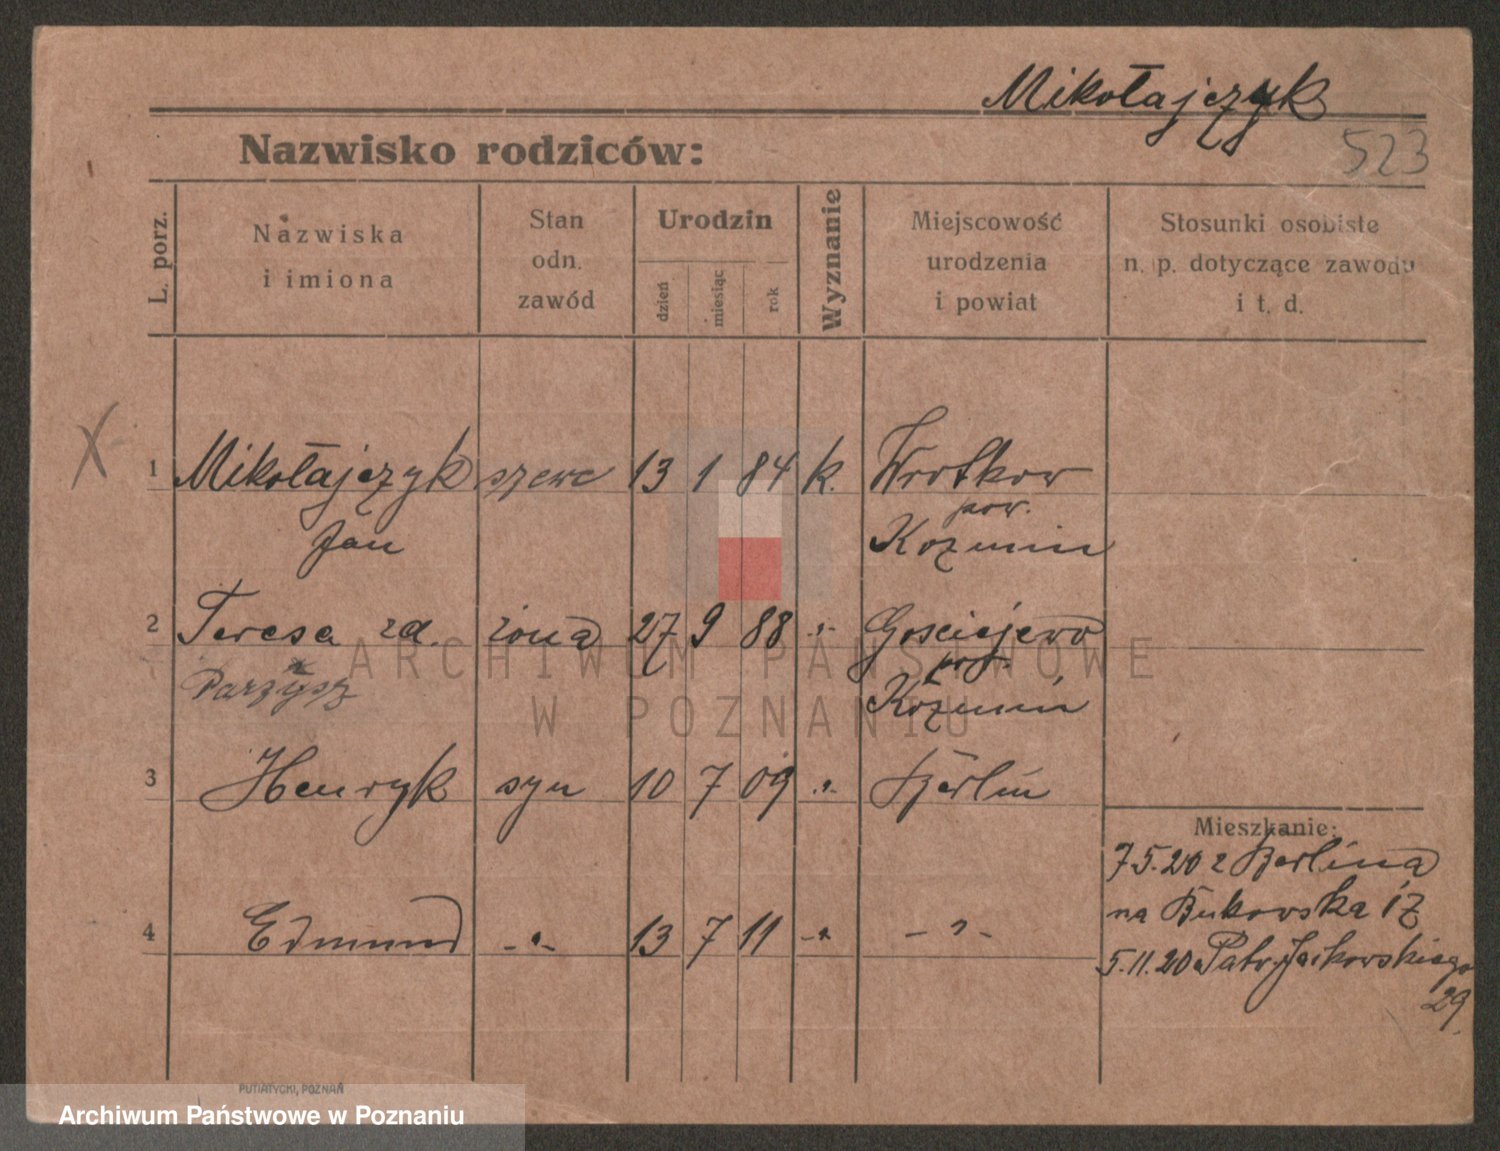 Mikołajczyk
523
Nazwisko rodziców:
L. porz.
Nazwiska
i imiona
Stan
odn.
zawód
Urodzin
dzień
miesiąc
rok
Wyznanie
Miejscowość
urodzenia
i powiat
Stosunki osobiste
n. p. dotyczące zawodu
i t. d.
X
1 Mikołajczyk szewc 13 1 84 k. Wrotkow
pow.
Jan Kozmin
2 Teresa zd. żona 27 9 88 -"- Gosciejewo
pow.
Parzysz Kozmin
3 Henryk syn 10 7 09 -"- Berlin
Mieszkanie:
7.5.20 z Berlina
na Bukowska 12
4 Edmund -"- 13 7 11 -"- -"-
5.11.20 Patr. Jackowskiego
29.
ARCHIWUM PAŃSTWOWE
W POZNANIU
PUTIATYCKI, POZNAŃ
Archiwum Państwowe w Poznaniu